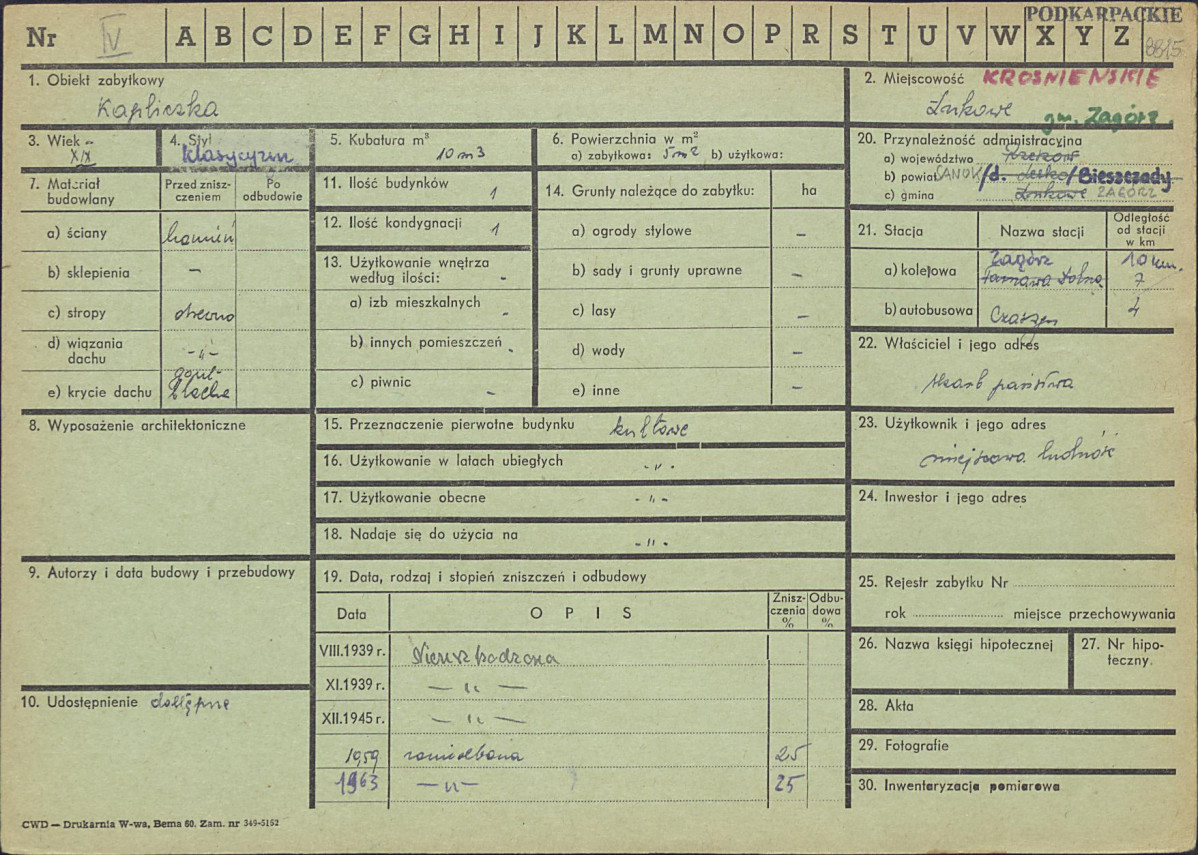 PODKARPACKIE
Nr IV A B C D E F G H I J K L M N O P R S T U V W X Y Z 8815
1. Obiekt zabytkowy
Kapliczka
2. Miejscowość KROŚNIEŃSKIE
Łukowe
gm. Zagórz
3. Wiek
XIX
4. Styl
klasycyzm
5. Kubatura m³
10 m3
6. Powierzchnia w m²
a) zabytkowa: 5m2 b) użytkowa:
20. Przynależność administracyjna
a) województwo Rzeszów
b) powiat SANOK /d. Lesko/ Bieszczady
c) gmina Łukowe ZAGÓRZ
7. Materiał budowlany
Przed zniszczeniem
Po odbudowie
a) ściany kamień
b) sklepienia –
c) stropy drewno
d) wiązania dachu -„-
e) krycie dachu gont- blacha
11. Ilość budynków 1
12. Ilość kondygnacji 1
13. Użytkowanie wnętrza według ilości: -
a) izb mieszkalnych -
b) innych pomieszczeń -
c) piwnic –
14. Grunty należące do zabytku: ha
a) ogrody stylowe –
b) sady i grunty uprawne –
c) lasy –
d) wody –
e) inne –
21. Stacja Nazwa stacji Odległość od stacji w km
a) kolejowa Zagórz 10 km.
Tarnawa Dolna 7
b) autobusowa Czaszyn 4
22. Właściciel i jego adres
skarb państwa
8. Wyposażenie architektoniczne
15. Przeznaczenie pierwotne budynku kultowe
16. Użytkowanie w latach ubiegłych -„-
17. Użytkowanie obecne -„-
18. Nadaje się do użycia na -„-
23. Użytkownik i jego adres
miejscowa ludność
24. Inwestor i jego adres
9. Autorzy i data budowy i przebudowy
19. Data, rodzaj i stopień zniszczeń i odbudowy
Data OPIS Zniszczenia % Odbudowa %
VIII.1939 r. Nieuszkodzona
XI.1939 r. — „ —
XII.1945 r. — „ —
1959 zaniedbana 25
1963 — „ — 25
10. Udostępnienie dostępne
25. Rejestr zabytku Nr
rok miejsce przechowywania
26. Nazwa księgi hipotecznej
27. Nr hipoteczny.
28. Akta
29. Fotografie
30. Inwentaryzacja pomiarowa
CWD — Drukarnia W-wa, Bema 60. Zam. nr 349-5152